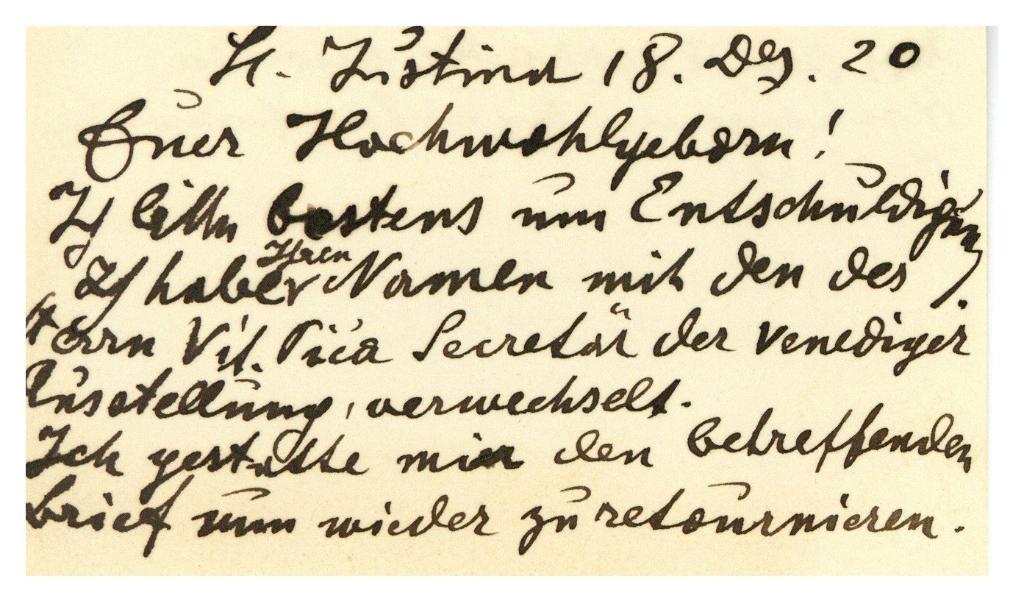 St. Justina 18. Dez. 20
Euer Hochwohlgeborn!
Ich bitte bestens um Entschuldigung,
Ich habe Ihren Namen mit den des
Herrn Vit. Pica Secretär der Venediger
Ausstellung, verwechselt.
Ich gestatte mir den betreffenden
brief nun wieder zu retournieren.